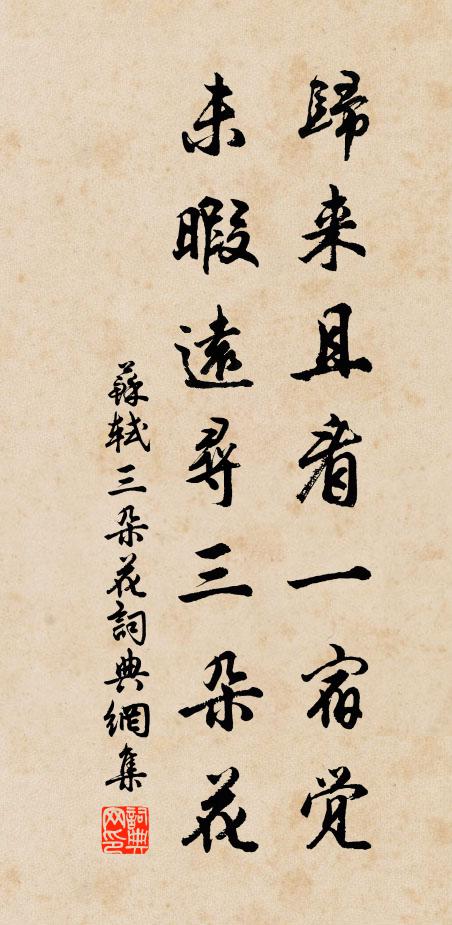 歸来且看一宿觉
未暇遠尋三朵花
蘇軾三朵花詞典網集
詞典网印